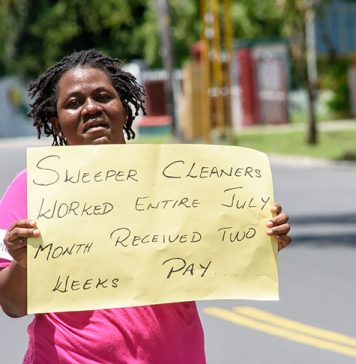 SWEEPER CLEANERS
WORKED ENTIRE JULY
MONTH RECEIVED TWO
WEEKS PAY....